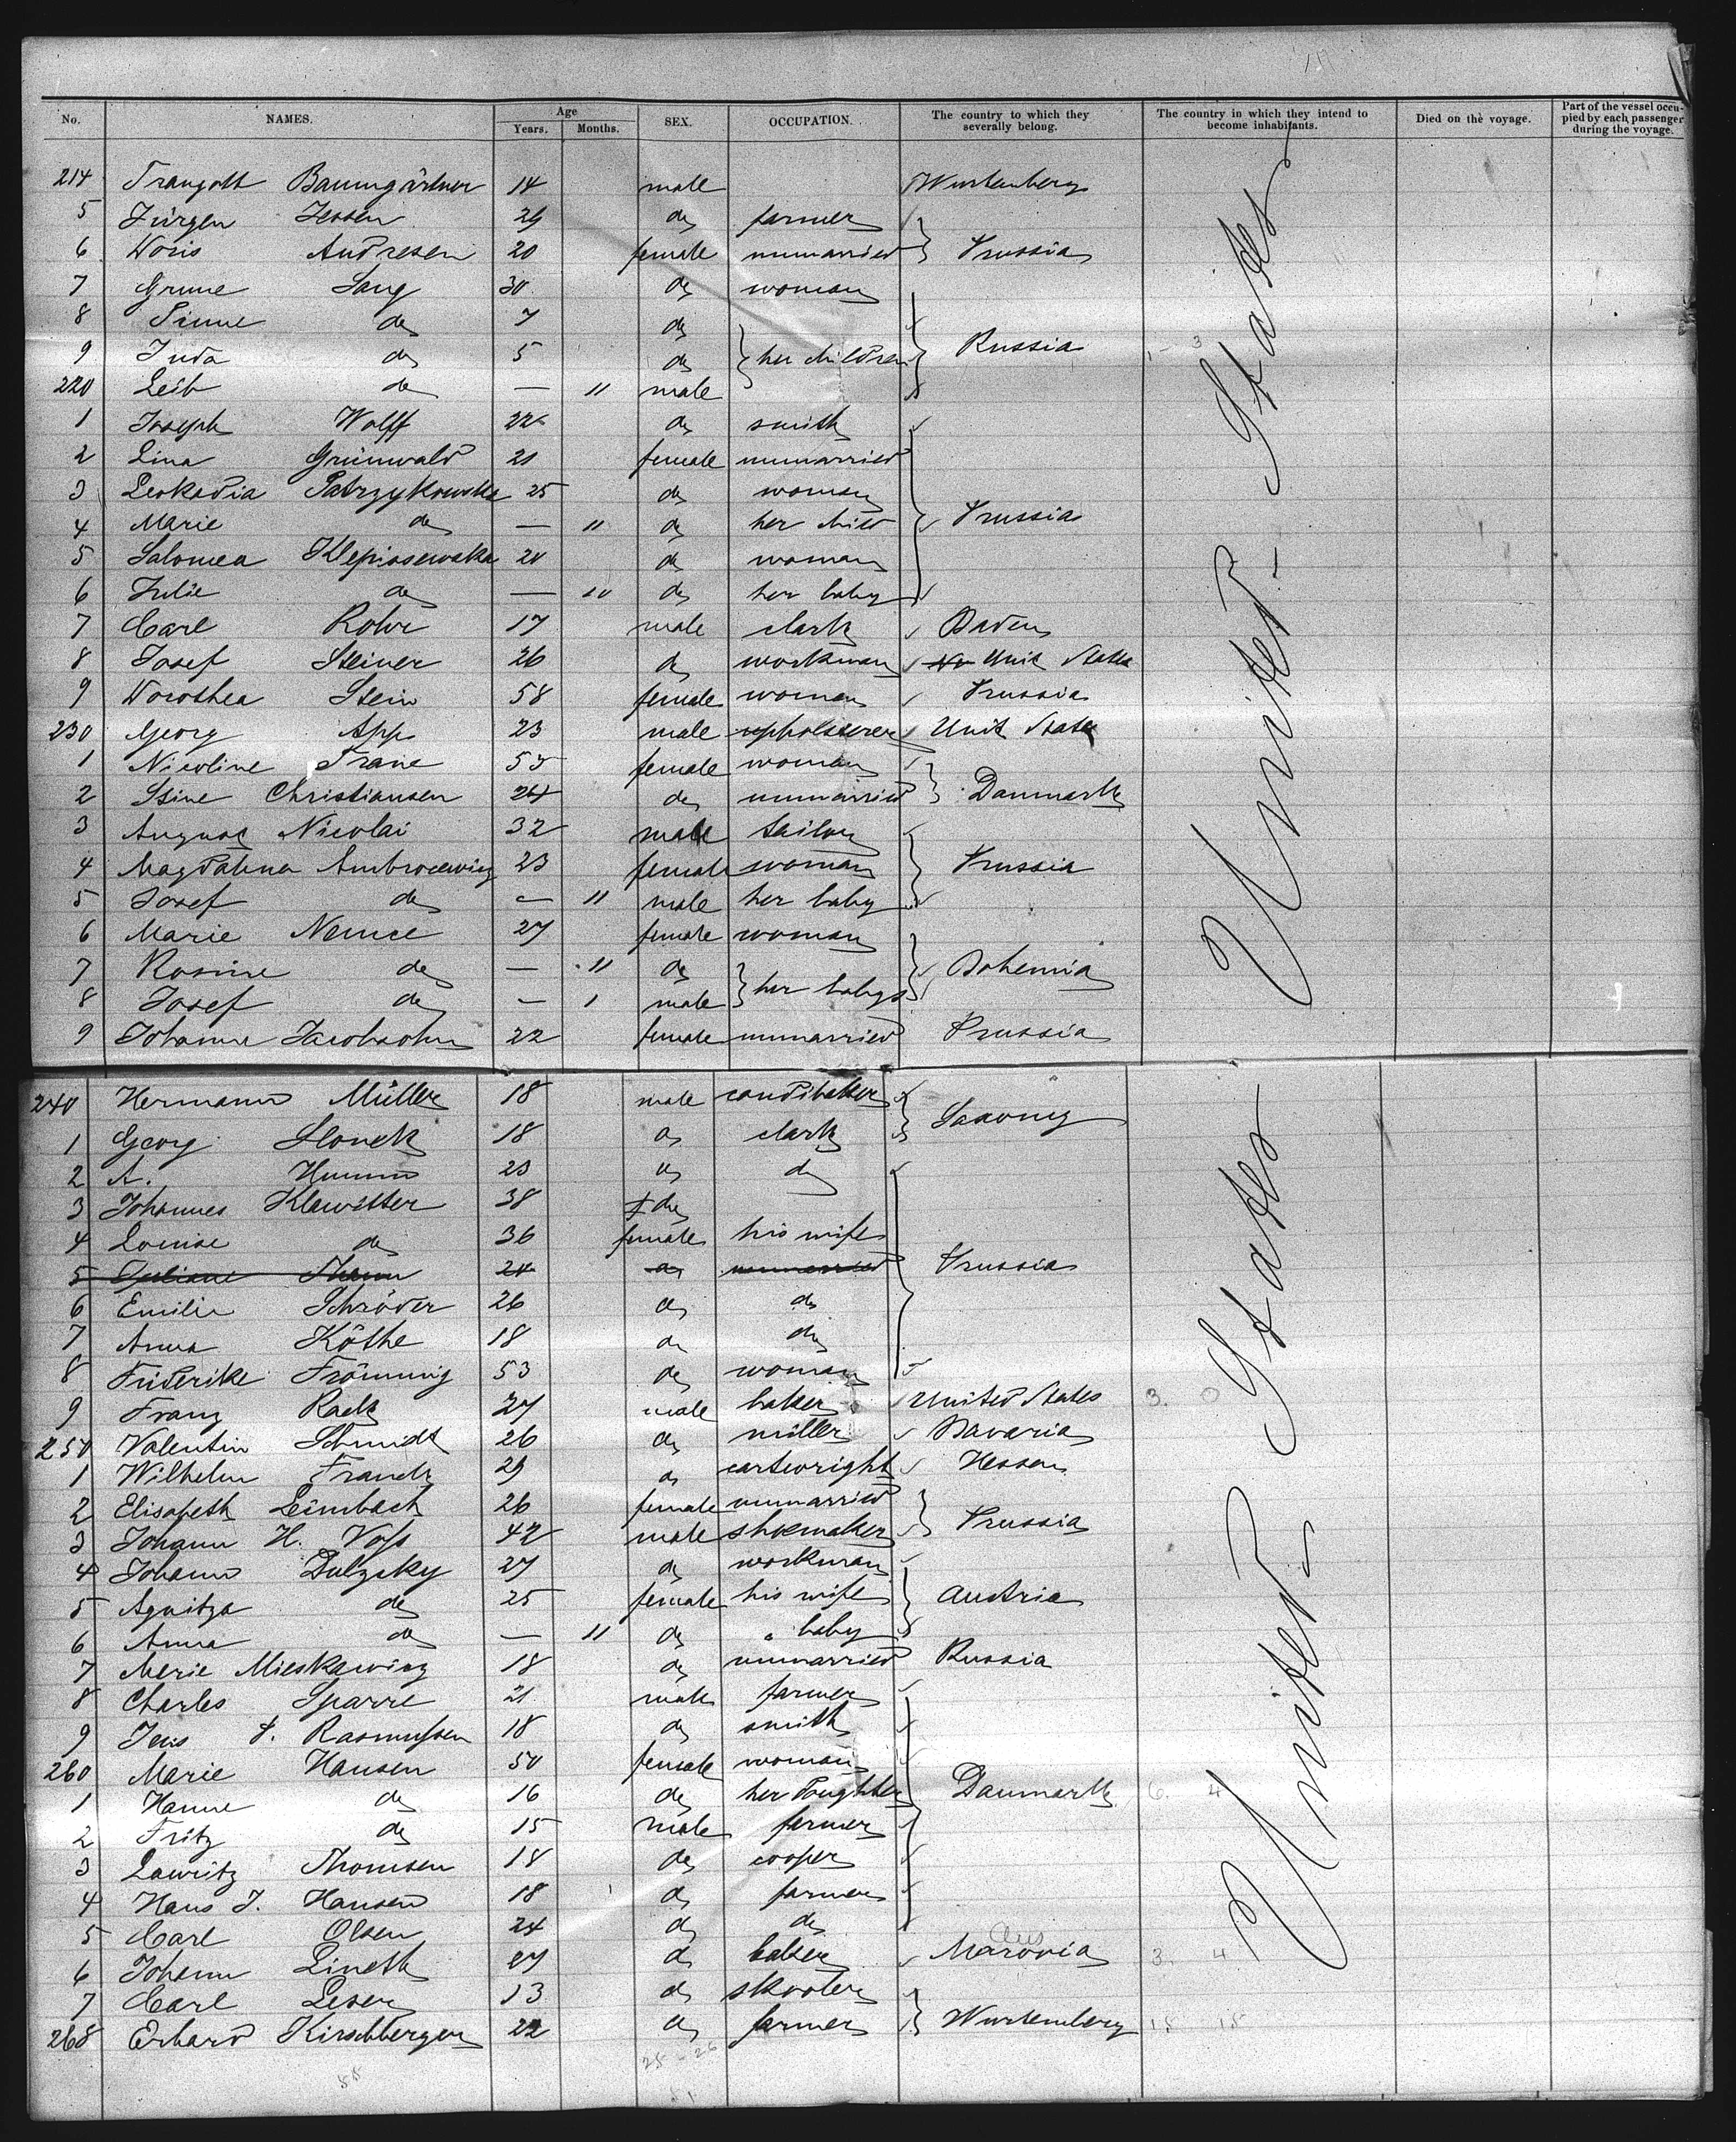 No. NAMES. Age Years. Months. SEX. OCCUPATION. The country to which they severally belong. The country in which they intend to become inhabitants. Died on the voyage. Part of the vessel occupied by each passenger during the voyage.
214 Traugott Baumgärtner 14 male Wurtemberg
5 Jürgen Jessen 29 do farmer
6 Doris Andresen 20 female unmarried Prussia
7 Grune Lang 30 do woman
8 Sinne do 7 do
9 Juda do 5 do her children Russia
220 Leib do — 11 male
1 Joseph Wolff 22 do smith
2 Lina Grünwald 21 female unmarried
3 Leokadia Patrzykowska 25 do woman
4 Marie do — 11 do her child Prussia
5 Salomea 20 do woman
6 Julie do — 10 do her baby
7 Carl Rohr 17 male clark Baden
8 Josef Steiner 26 do workman Unit States
9 Dorothea Stein 58 female woman Prussia
230 Georg App 23 male upholsterer Unit State
1 Nicoline Trane 55 female woman
2 Stine Christiansen 24 do unmarried Danmark
3 August Nicolai 32 male tailor
4 Magdalena 23 female woman Prussia
5 Josef do — 11 male her baby
6 Marie Nemec 27 female woman
7 Rosine do — 11 do Bohemia
8 Josef do — 1 male her babys
9 Johanne Jacobsohn 22 female unmarried Prussia
United States
240 Hermann Müller 18 male Saxony
1 Georg Slonek 18 do clark
2 A. Humm 23 do do
3 Johannes Klawitter 38 do
4 Louise do 36 female his wife
5 Juliane 20 do unmarried Prussia
6 Emilie Schröder 26 do do
7 Anna Köthe 18 do do
8 Friderike Frömming 53 do woman
9 Franz Rack 27 male baker United States
250 Valentin Schmidt 26 do müller Bavaria
1 Wilhelm Franck 29 do cartwright Hessen
2 Elisabeth Leimbach 26 female unmarried
3 Johann H. Voss 42 male shoemaker Prussia
4 Johann Dulzsky 27 do workman
5 Agnitza do 25 female his wife Austria
6 Anna do — 11 do " baby
7 Merie Mieskawicz 18 do unmarried Russia
8 Charles Sparre 21 male farmer
9 Jens P. Rasmussen 18 do smith
260 Marie Hansen 50 female woman
1 Hanne do 16 do her doughter Danmark
2 Fritz do 15 male farmer
3 Lauritz Thomsen 18 do cooper
4 Hans J. Hansen 18 do farmer
5 Carl Olsen 24 do do
6 Johann Lineth 27 do baker Marovia
7 Carl Leser 13 do skooler
268 Erhard Kirschberger 22 do farmer Wurtemberg
United States